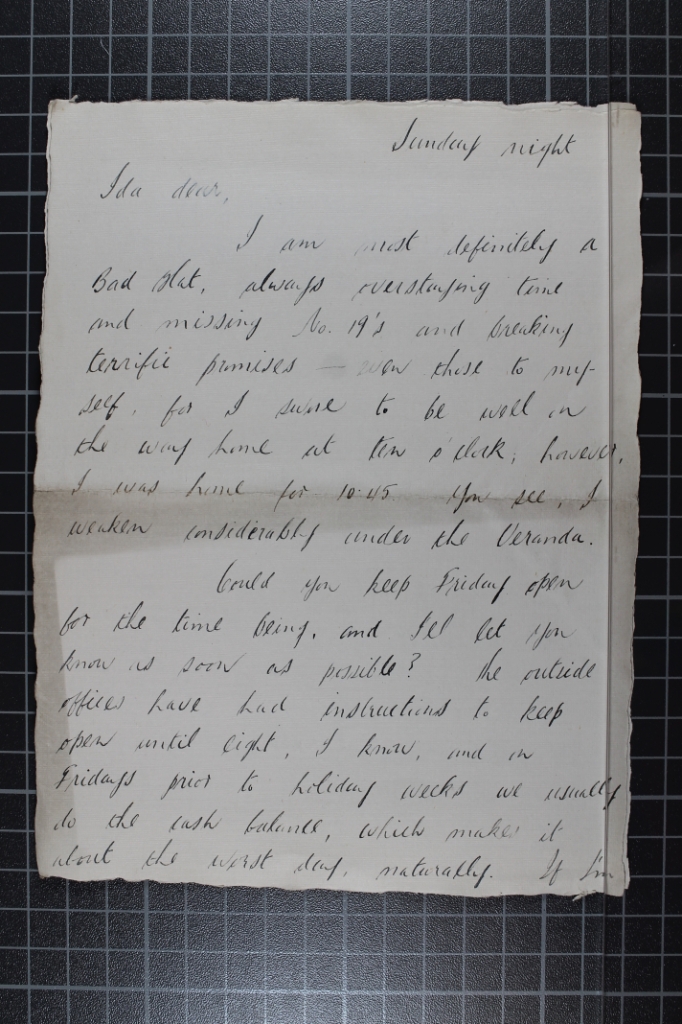 Sunday night
Ida dear,
I am most definitely a
Bad Hat, always overstaying time
and missing No. 19's and breaking
terrific promises — even those to my-
self, for I swore to be well on
the way home at ten o'clock; however,
I was home for 10.45. You see, I
weaken considerably under the Veranda.
Could you keep Friday open
for the time being, and I'll let you
know as soon as possible? The outside
offices have had instructions to keep
open until eight, I know, and on
Fridays prior to holiday weeks we usually
do the cash balance, which makes it
about the worst day, naturally. If I'm